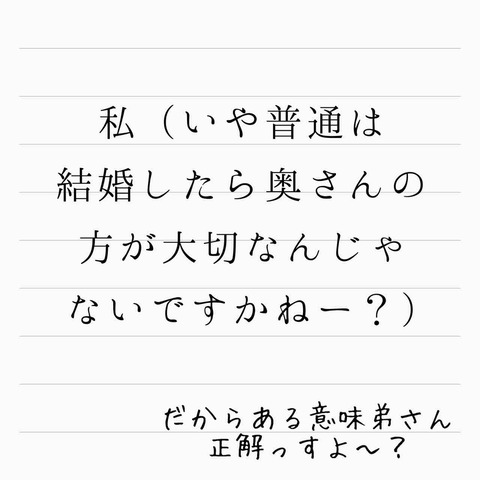 私（いや普通は
結婚したら奥さんの
方が大切なんじゃ
ないですかねー？）
だからある意味弟さん
正解っすよ〜？